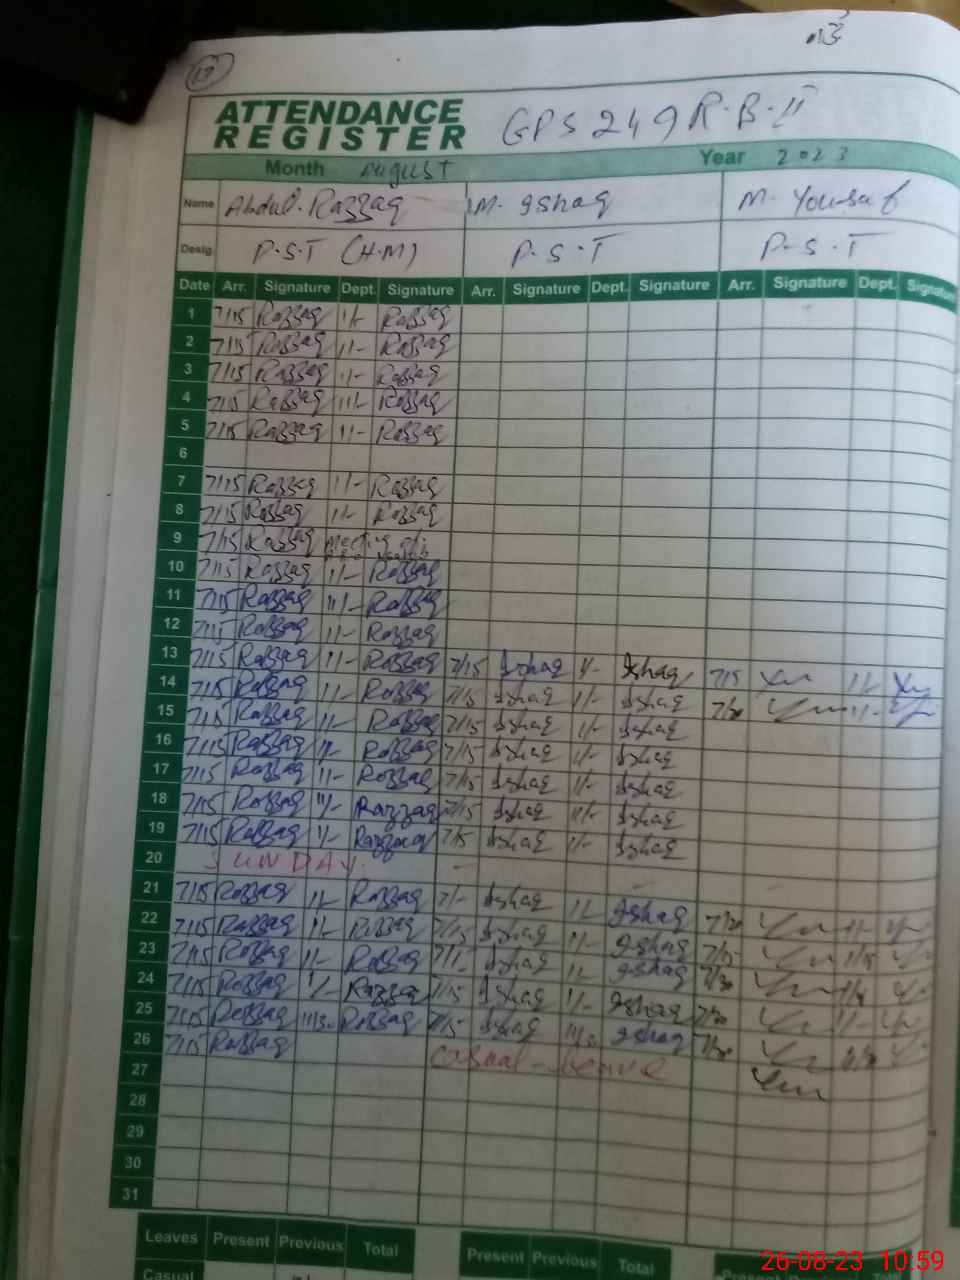 17
ATTENDANCE REGISTER GPS 249 R.B-II
Month August Year 2023
Name Abdul.Razzaq M. Ishaq M. Yousaf
Desig. P.S.T (H.M) P.S.T P.S.T
Date Arr. Signature Dept. Signature Arr. Signature Dept. Signature Arr. Signature Dept. Signature
1 7/15 Razzaq 11/- Razzaq
2 7/15 Razzaq 11/- Razzaq
3 7/15 Razzaq 11/- Razzaq
4 7/15 Razzaq 11/- Razzaq
5 7/15 Razzaq 11/- Razzaq
6
7 7/15 Razzaq 11/- Razzaq
8 7/15 Razzaq 11/- Razzaq
9 7/15 Razzaq Meeting
10 7/15 Razzaq 11/- Razzaq
11 7/15 Razzaq 11/- Razzaq
12 7/15 Razzaq 11/- Razzaq
13 7/15 Razzaq 11/- Razzaq 7/15 Ishaq 11/- Ishaq 7/15 11/-
14 7/15 Razzaq 11/- Razzaq 7/15 Ishaq 11/- Ishaq 7/30 11/-
15 7/15 Razzaq 11/- Razzaq 7/15 Ishaq 11/- Ishaq
16 7/15 Razzaq 11/- Razzaq 7/15 Ishaq 11/- Ishaq
17 7/15 Razzaq 11/- Razzaq 7/15 Ishaq 11/- Ishaq
18 7/15 Razzaq 11/- Razzaq 7/15 Ishaq 11/- Ishaq
19 7/15 Razzaq 11/- Razzaq 7/15 Ishaq 11/- Ishaq
20 SUNDAY.
21 7/15 Razzaq 11/- Razzaq 7/- Ishaq 11/- Ishaq 7/30
22 7/15 Razzaq 11/- Razzaq 7/15 Ishaq 11/- Ishaq 7/15
23 7/15 Razzaq 11/- Razzaq 7/15 Ishaq 11/- Ishaq 7/30
24 7/15 Razzaq 11/- Razzaq 7/15 Ishaq 11/- Ishaq 7/30
25 7/15 Razzaq 11/30 Razzaq 7/15 Ishaq Ishaq 7/30
26 7/15 Razzaq Casual-leave
27
28
29
30
31
Leaves Present Previous Total Present Previous Total
Casual
26-08-23 10:59